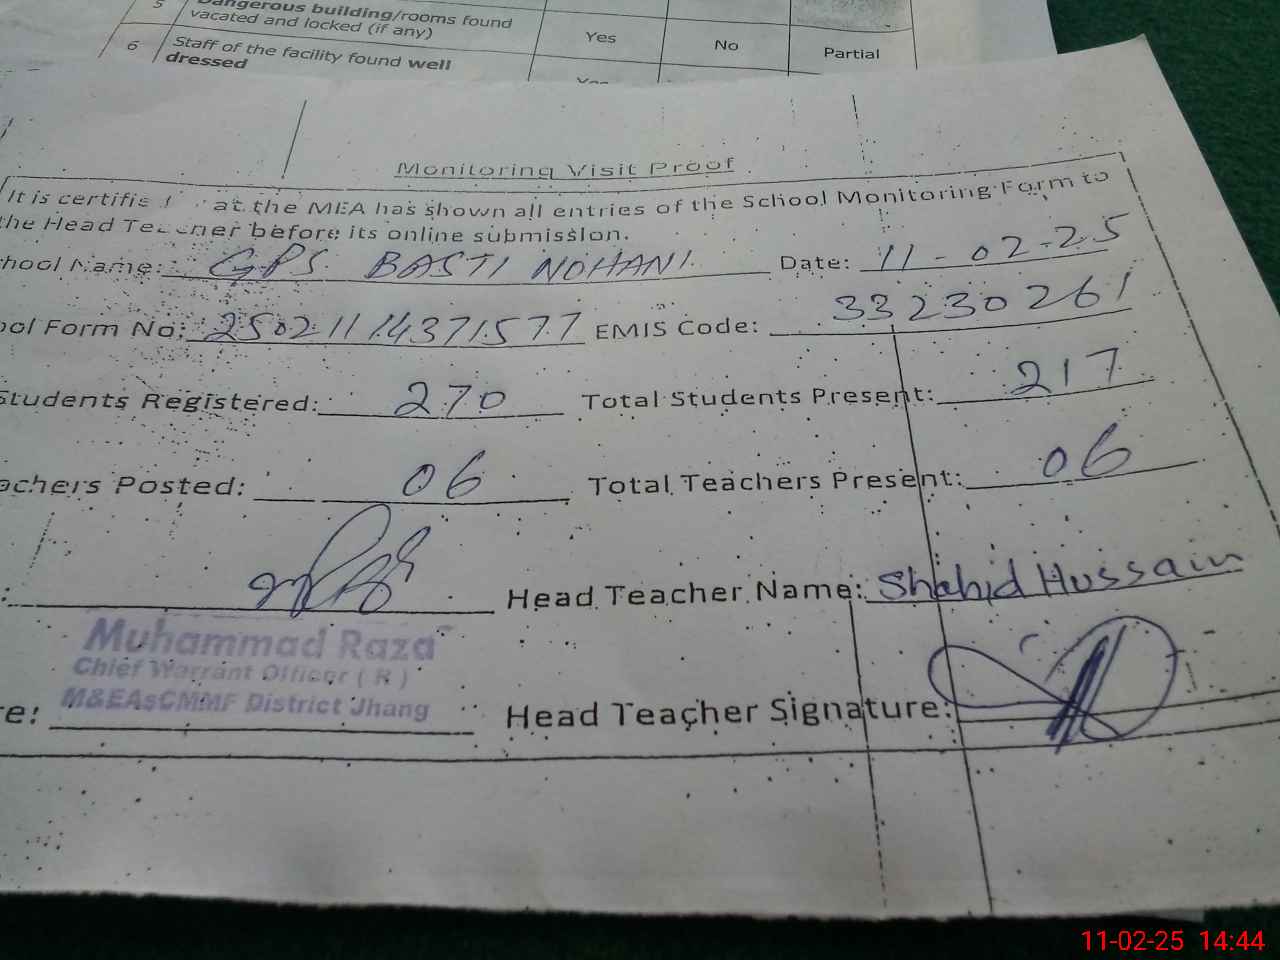 5 Dangerous building/rooms found
vacated and locked (if any) Yes No Partial
6 Staff of the facility found well
dressed
Monitoring Visit Proof
It is certifie at the MEA has shown all entries of the School Monitoring Form to
the Head Teacher before its online submission.
hool Name: GPS BASTI NOHANI Date: 11-02-25
ool Form No: 25021114371577 EMIS Code: 33230261
Students Registered: 270 Total Students Present: 217
achers Posted: 06 Total Teachers Present: 06
Head Teacher Name: Shahid Hussain
Muhammad Raza
Chief Warrant Officer (R)
M&EAsCMMF District Jhang
re: Head Teacher Signature:
11-02-25 14:44